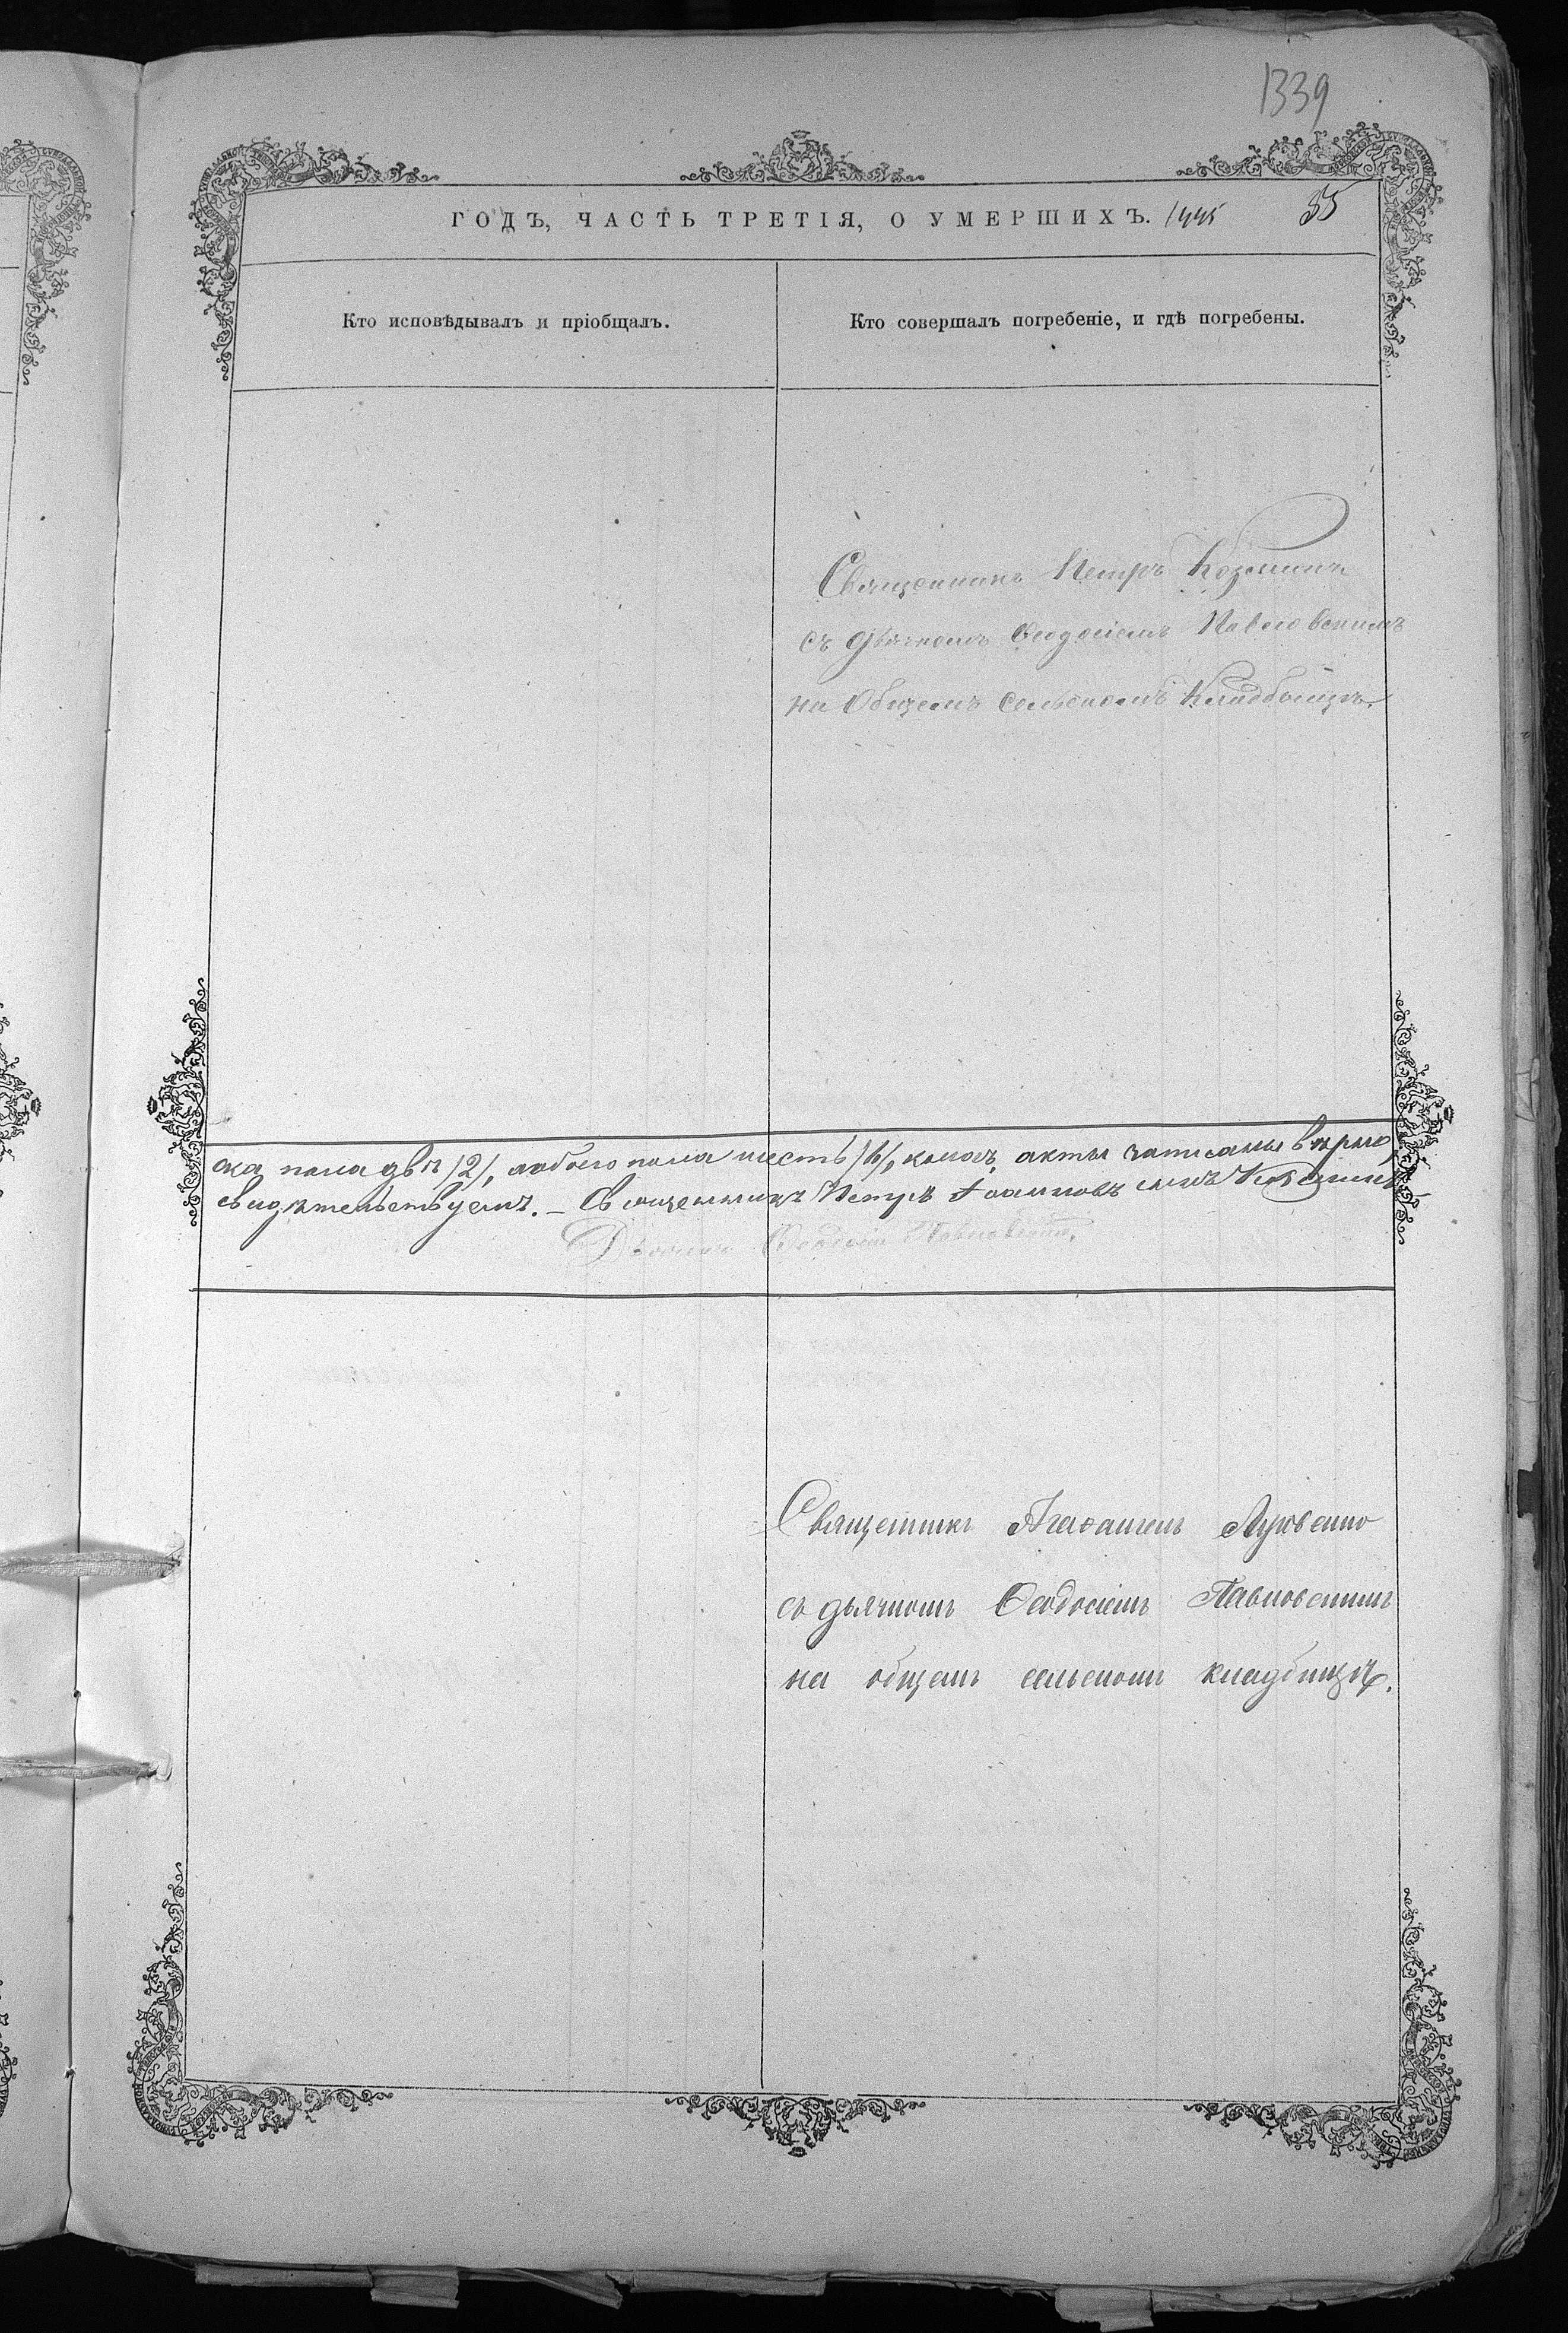 1339
ГОДЪ, ЧАСТЬ ТРЕТІЯ, О УМЕРШИХЪ. 55
Кто исповѣдывалъ и пріобщалъ.
Кто совершалъ погребеніе, и гдѣ погребены.
Священникъ Петръ Козминъ
съ дьячкомъ Ѳеодосіемъ Павловскимъ
на Общемъ Сельскомъ Кладбищѣ.
ска пола двѣ /2/, обоего пола шесть /6/, коихъ акты записаны вѣрно,
свидѣтельствуемъ. – Священникъ Петръ Іоанновъ сынъ
Дьячекъ Ѳеодосій Павловскій.
Священникъ Агаѳангелъ
съ дьячкомъ Ѳеодосіемъ Павловскимъ
на общемъ сельскомъ кладбищѣ.